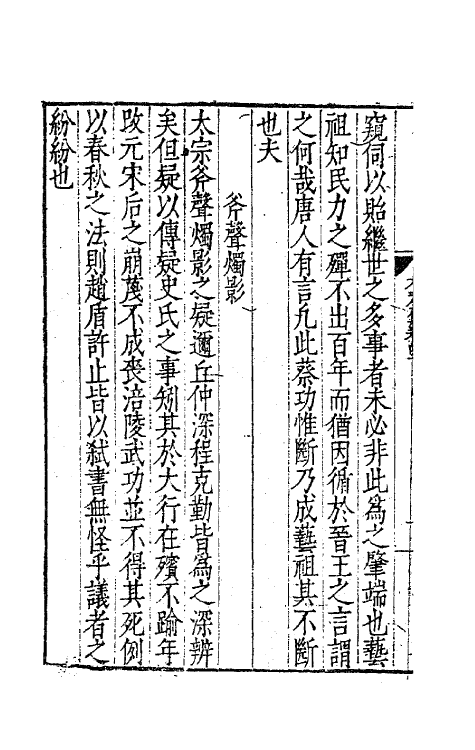 窺伺以貽繼世之多事者未必非此為之肇端也藝
祖知民力之殫不出百年而猶因循於晉王之言謂
之何哉唐人有言凢此蔡功惟斷乃成藝祖其不斷
也夫
斧聲燭影
太宗斧聲燭影之疑邇丘仲深程克勤皆為之深辨
矣但疑以傳疑史氏之事矧其於大行在殯不踰年
改元宋后之崩蔑不成喪涪陵武功並不得其死例
以春秋之法則趙盾許止皆以弑書無怪乎議者之
紛紛也